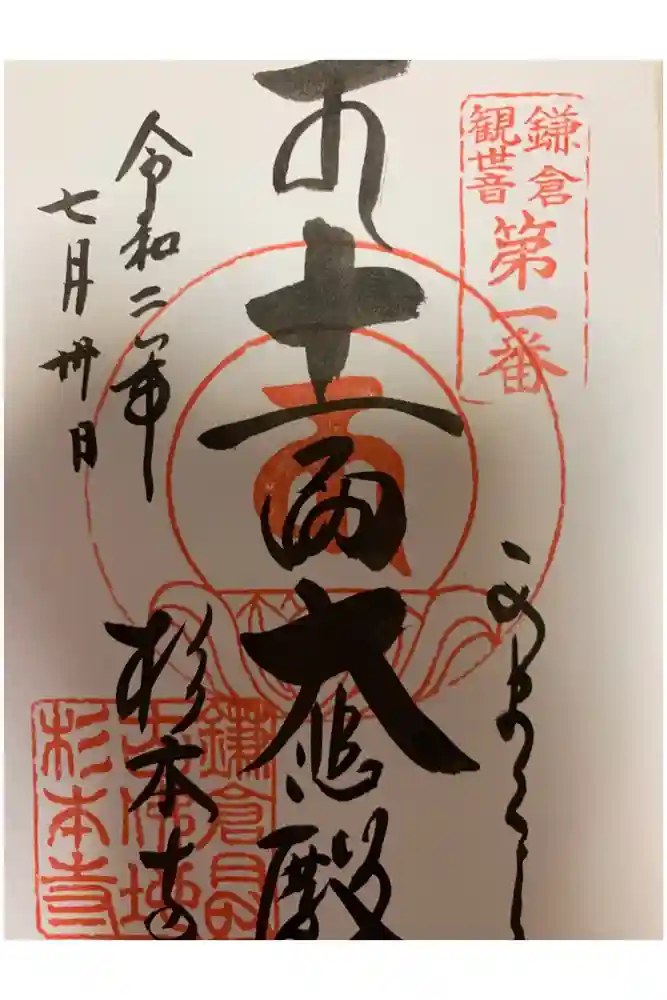 鎌倉
観世音
第一番
十一面大悲殿
令和二年
七月卅日
杉本寺
鎌倉最
古佛地
杉本寺